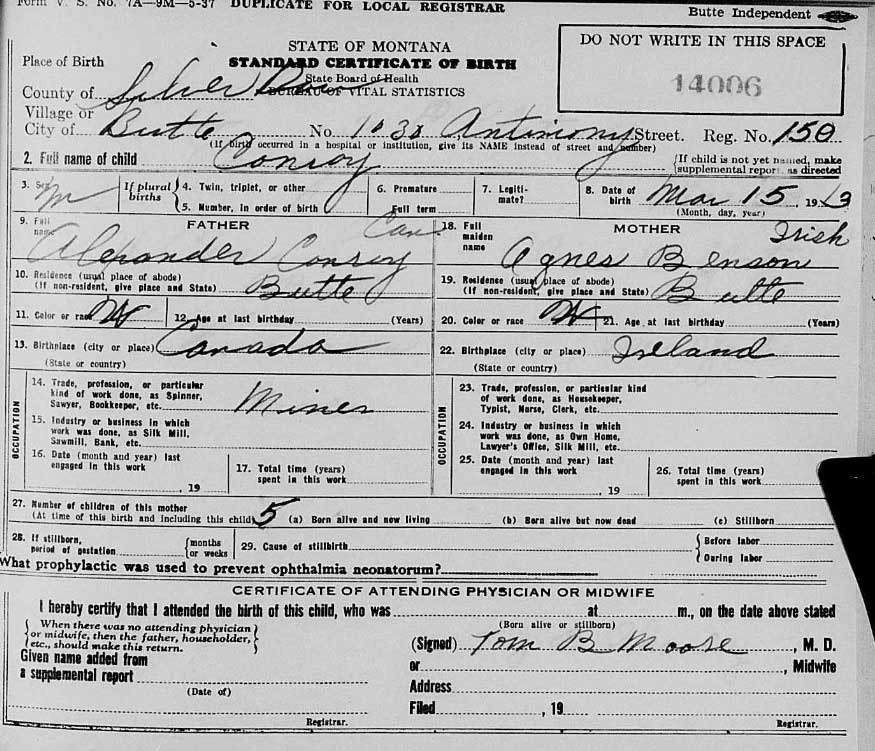 Form V. S. No. 7A—9M—5-37 DUPLICATE FOR LOCAL REGISTRAR Butte Independent
STATE OF MONTANA
STANDARD CERTIFICATE OF BIRTH
State Board of Health
BUREAU OF VITAL STATISTICS
DO NOT WRITE IN THIS SPACE
14006
Place of Birth
County of Silver Bow
Village or
City of Butte No. 1030 Antimony Street. Reg. No. 150
(If birth occurred in a hospital or institution, give its NAME instead of street and number)
2. Full name of child Conroy {If child is not yet named, make supplemental report, as directed
3. Sex M If plural births 4. Twin, triplet, or other 5. Number, in order of birth 6. Premature Full term 7. Legiti-mate? 8. Date of birth Mar 15 1923
(Month, day, year)
9. Full name FATHER Can
Alexander Conroy
18. Full maiden name MOTHER Irish
Agnes Benson
10. Residence (usual place of abode)
(If non-resident, give place and State) Butte
19. Residence (usual place of abode)
(If non-resident, give place and State) Butte
11. Color or race W 12. Age at last birthday (Years)
20. Color or race W 21. Age at last birthday (Years)
13. Birthplace (city or place) Canada
(State or country)
22. Birthplace (city or place) Ireland
(State or country)
OCCUPATION
14. Trade, profession, or particular
kind of work done, as Spinner,
Sawyer, Bookkeeper, etc. Miner
15. Industry or business in which
work was done, as Silk Mill,
Sawmill, Bank, etc.
16. Date (month and year) last
engaged in this work
, 19
17. Total time (years)
spent in this work
OCCUPATION
23. Trade, profession, or particular kind
of work done, as Housekeeper,
Typist, Nurse, Clerk, etc.
24. Industry or business in which
work was done, as Own Home,
Lawyer's Office, Silk Mill, etc.
25. Date (month and year) last
engaged in this work
, 19
26. Total time (years)
spent in this work
27. Number of children of this mother
(At time of this birth and including this child) 5 (a) Born alive and now living (b) Born alive but now dead (c) Stillborn
28. If stillborn,
period of gestation {months or weeks 29. Cause of stillbirth {Before labor
During labor
What prophylactic was used to prevent ophthalmia neonatorum?
CERTIFICATE OF ATTENDING PHYSICIAN OR MIDWIFE
I hereby certify that I attended the birth of this child, who was at m., on the date above stated
(Born alive or stillborn)
{When there was no attending physician
or midwife, then the father, householder,
etc., should make this return.}
(Signed) Tom B Moore, M. D.
Given name added from
a supplemental report
(Date of)
or , Midwife
Address
Filed , 19
Registrar. Registrar.